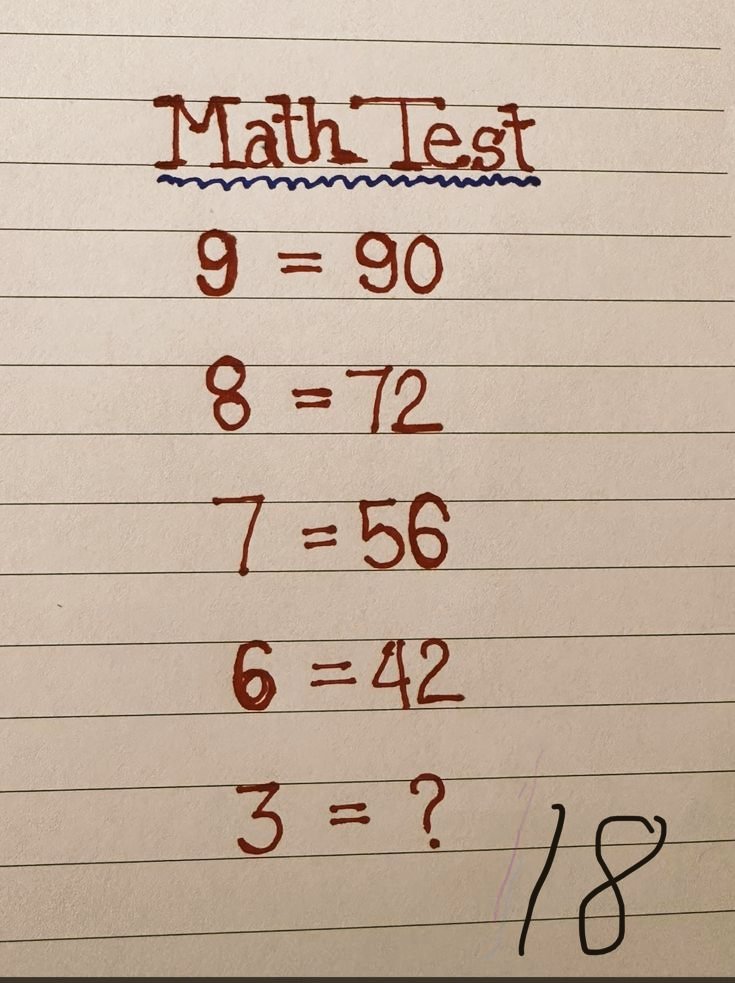 Math Test
9 = 90
8 = 72
7 = 56
6 = 42
3 = ?
18